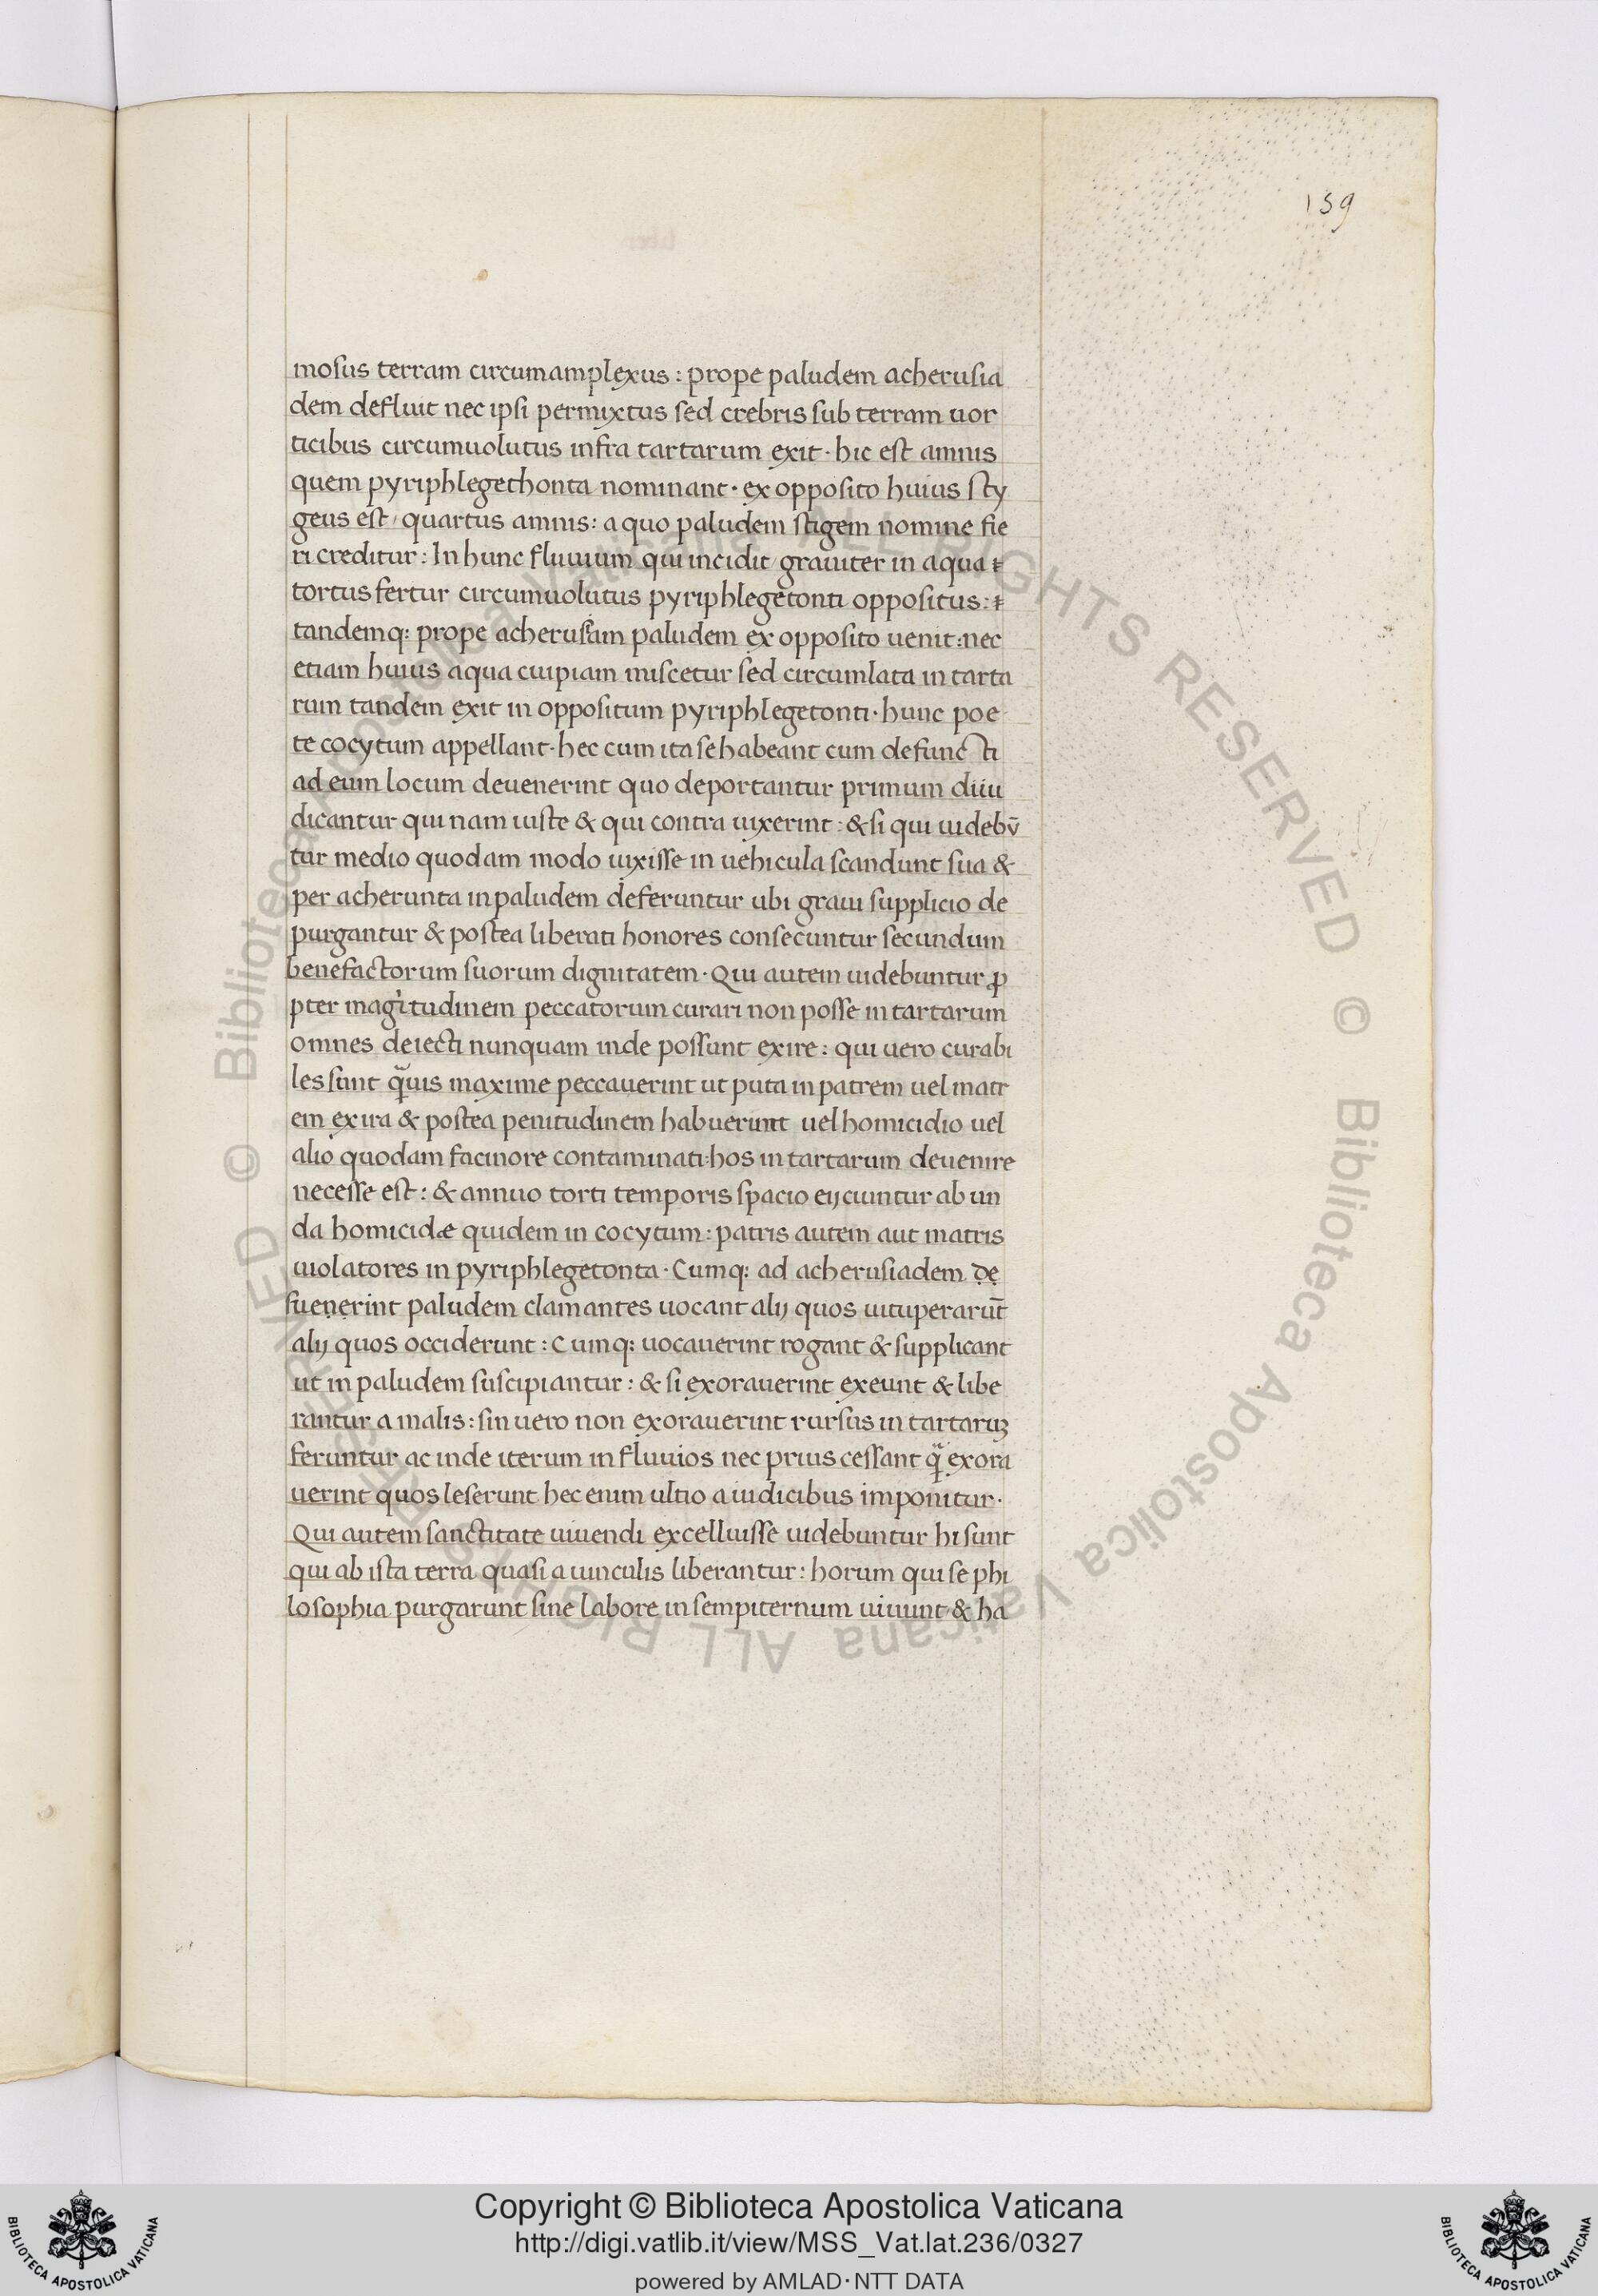 159
mosus terram circumamplexus : prope paludem acherusia
dem defluit nec ipsi permixtus sed crebris sub terram uor
ticibus circumuolutus infra tartarum exit · hic est amnis
quem pyriphlegethonta nominant · ex opposito huius sty
geus est / quartus amnis : a quo paludem stigem nomine fie
ri creditur : In hunc fluuium qui incidit / grauiter in aqua ⁊
tortus fertur circumuolutus pyriphlegetonti oppositus : ⁊
tandemq; prope acherusiam paludem ex opposito uenit : nec
etiam huius aqua cuipiam miscetur sed circumlata in tarta
rum tandem exit in oppositum pyriphlegetonti · hunc poe
te cocytum appellant · hec cum ita se habeant cum defuncti
ad eum locum deuenerint quo deportantur primum diiu
dicantur qui nam iuste & qui contra uixerint : & si qui uidebū
tur medio quodam modo uixisse in uehicula scandunt sua &
per acherunta in paludem deferuntur ubi graui supplicio de
purgantur & postea liberati honores consecuntur secundum
benefactorum suorum dignitatem · Qui autem uidebuntur ꝓ
pter magitudinem peccatorum curari non posse in tartarum
omnes deiecti nunquam inde possunt exire : qui uero curabi
les sunt q̃uis maxime peccauerint ut puta in patrem uel matr
em ex ira & postea penitudinem habuerint uel homicidio uel
alio quodam facinore contaminati : hos in tartarum deuenire
necesse est : & annuo torti temporis spacio eijciuntur ab un
da homicidæ quidem in cocytum : patris autem aut matris
uiolatores in pyriphlegetonta · Cumq; ad acherusiadem de
fuenerint paludem clamantes uocant alij quos uituperarūt
alij quos occiderunt : Cumq; uocauerint rogant & supplicant
ut in paludem suscipiantur : & si exorauerint exeunt & libe
rantur a malis : sin uero non exorauerint rursus in tartaruꝫ
feruntur ac inde iterum in fluuios nec prius cessant q̃ exora
uerint quos leserunt hec enim ultio a iudicibus imponitur ·
Qui autem sanctitate uiuendi excelluisse uidebuntur hi sunt
qui ab ista terra quasi a uinculis liberantur : horum qui se phi
losophia purgarunt sine labore in sempiternum uiuunt & ha
© Biblioteca Apostolica Vaticana ALL RIGHTS RESERVED © Biblioteca Apostolica Vaticana ALL RIGHTS RESERVED
BIBLIOTECA APOSTOLICA VATICANA
Copyright © Biblioteca Apostolica Vaticana
http://digi.vatlib.it/view/MSS_Vat.lat.236/0327
powered by AMLAD·NTT DATA
BIBLIOTECA APOSTOLICA VATICANA